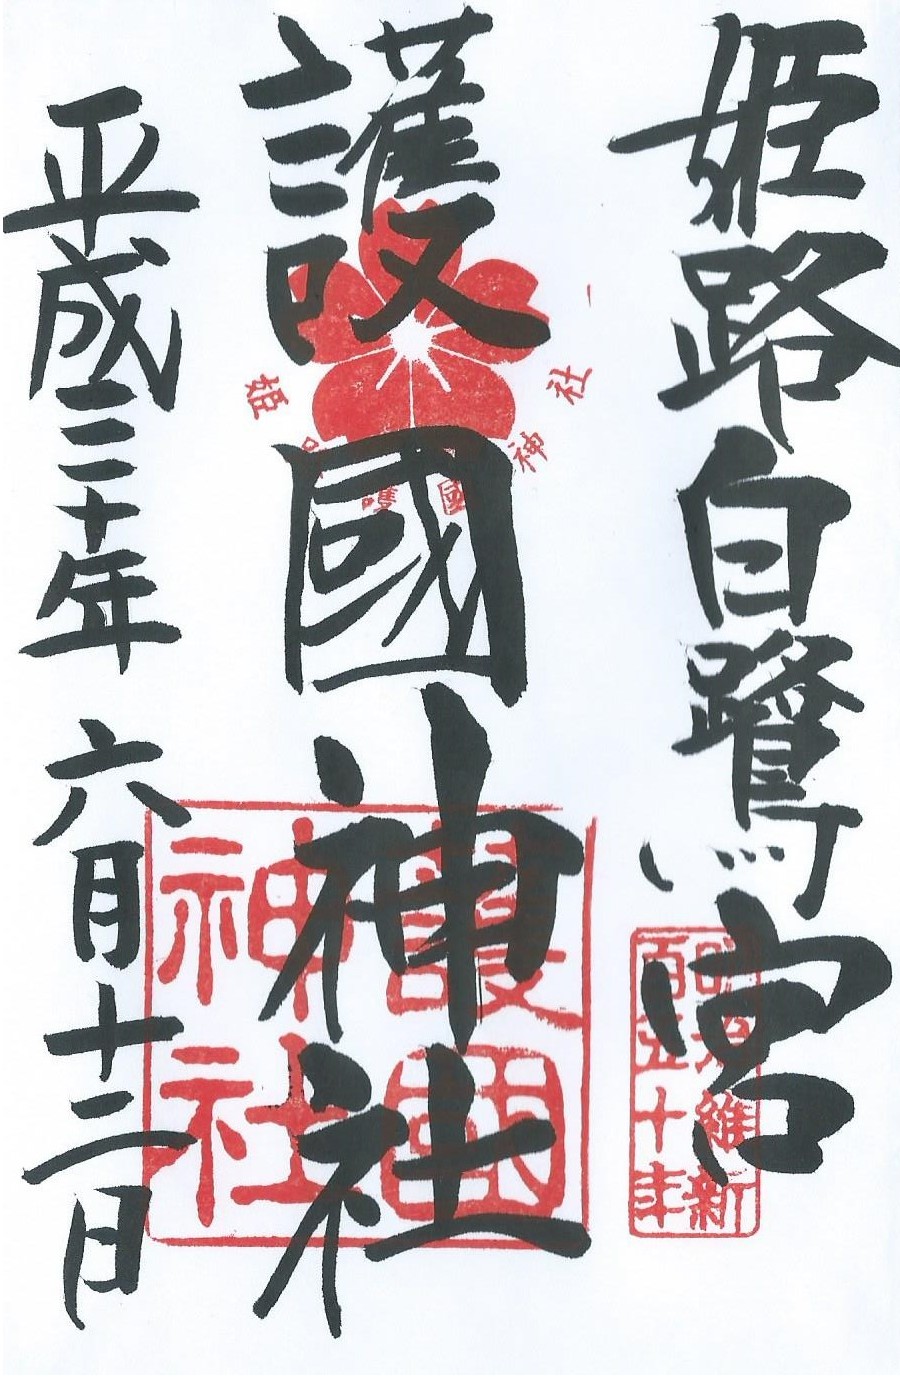 姫路白鷺宮
護國神社
平成三十年 六月十二日
姫路護國神社
護國
神社
明治維新
百五十年